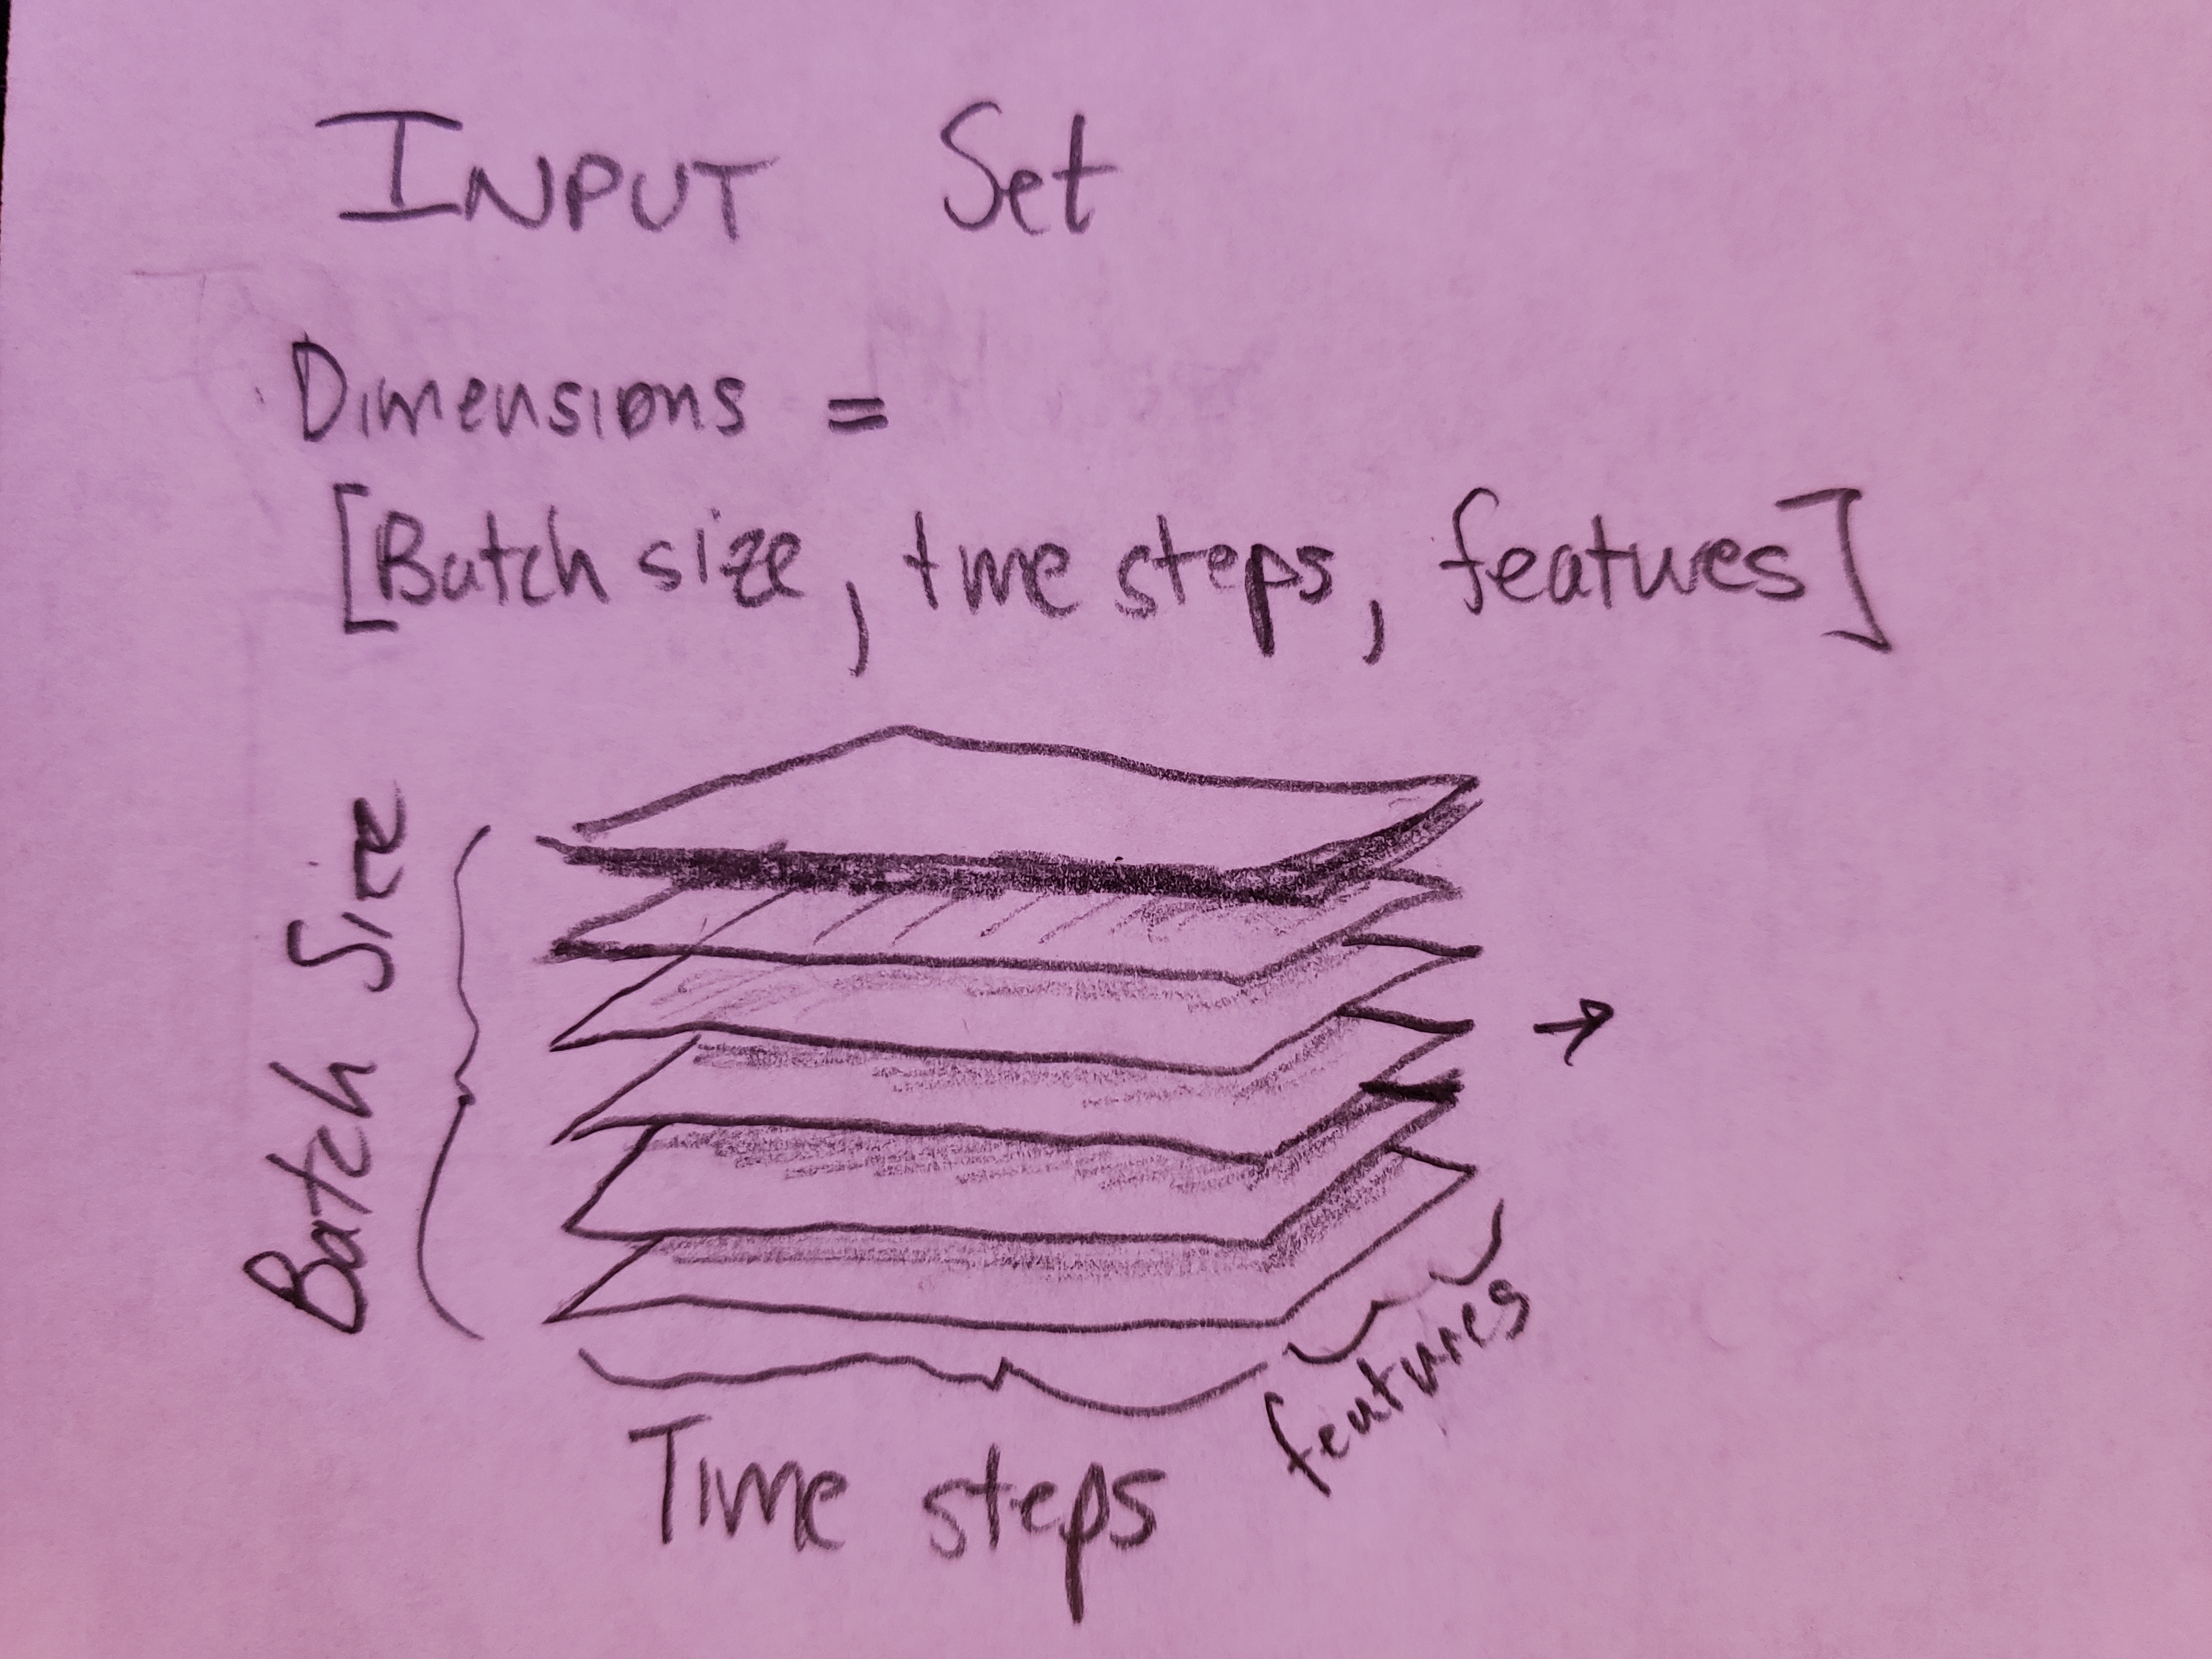 INPUT Set
Dimensions =
[Batch size, time steps, features]
Batch Size
features
Time steps